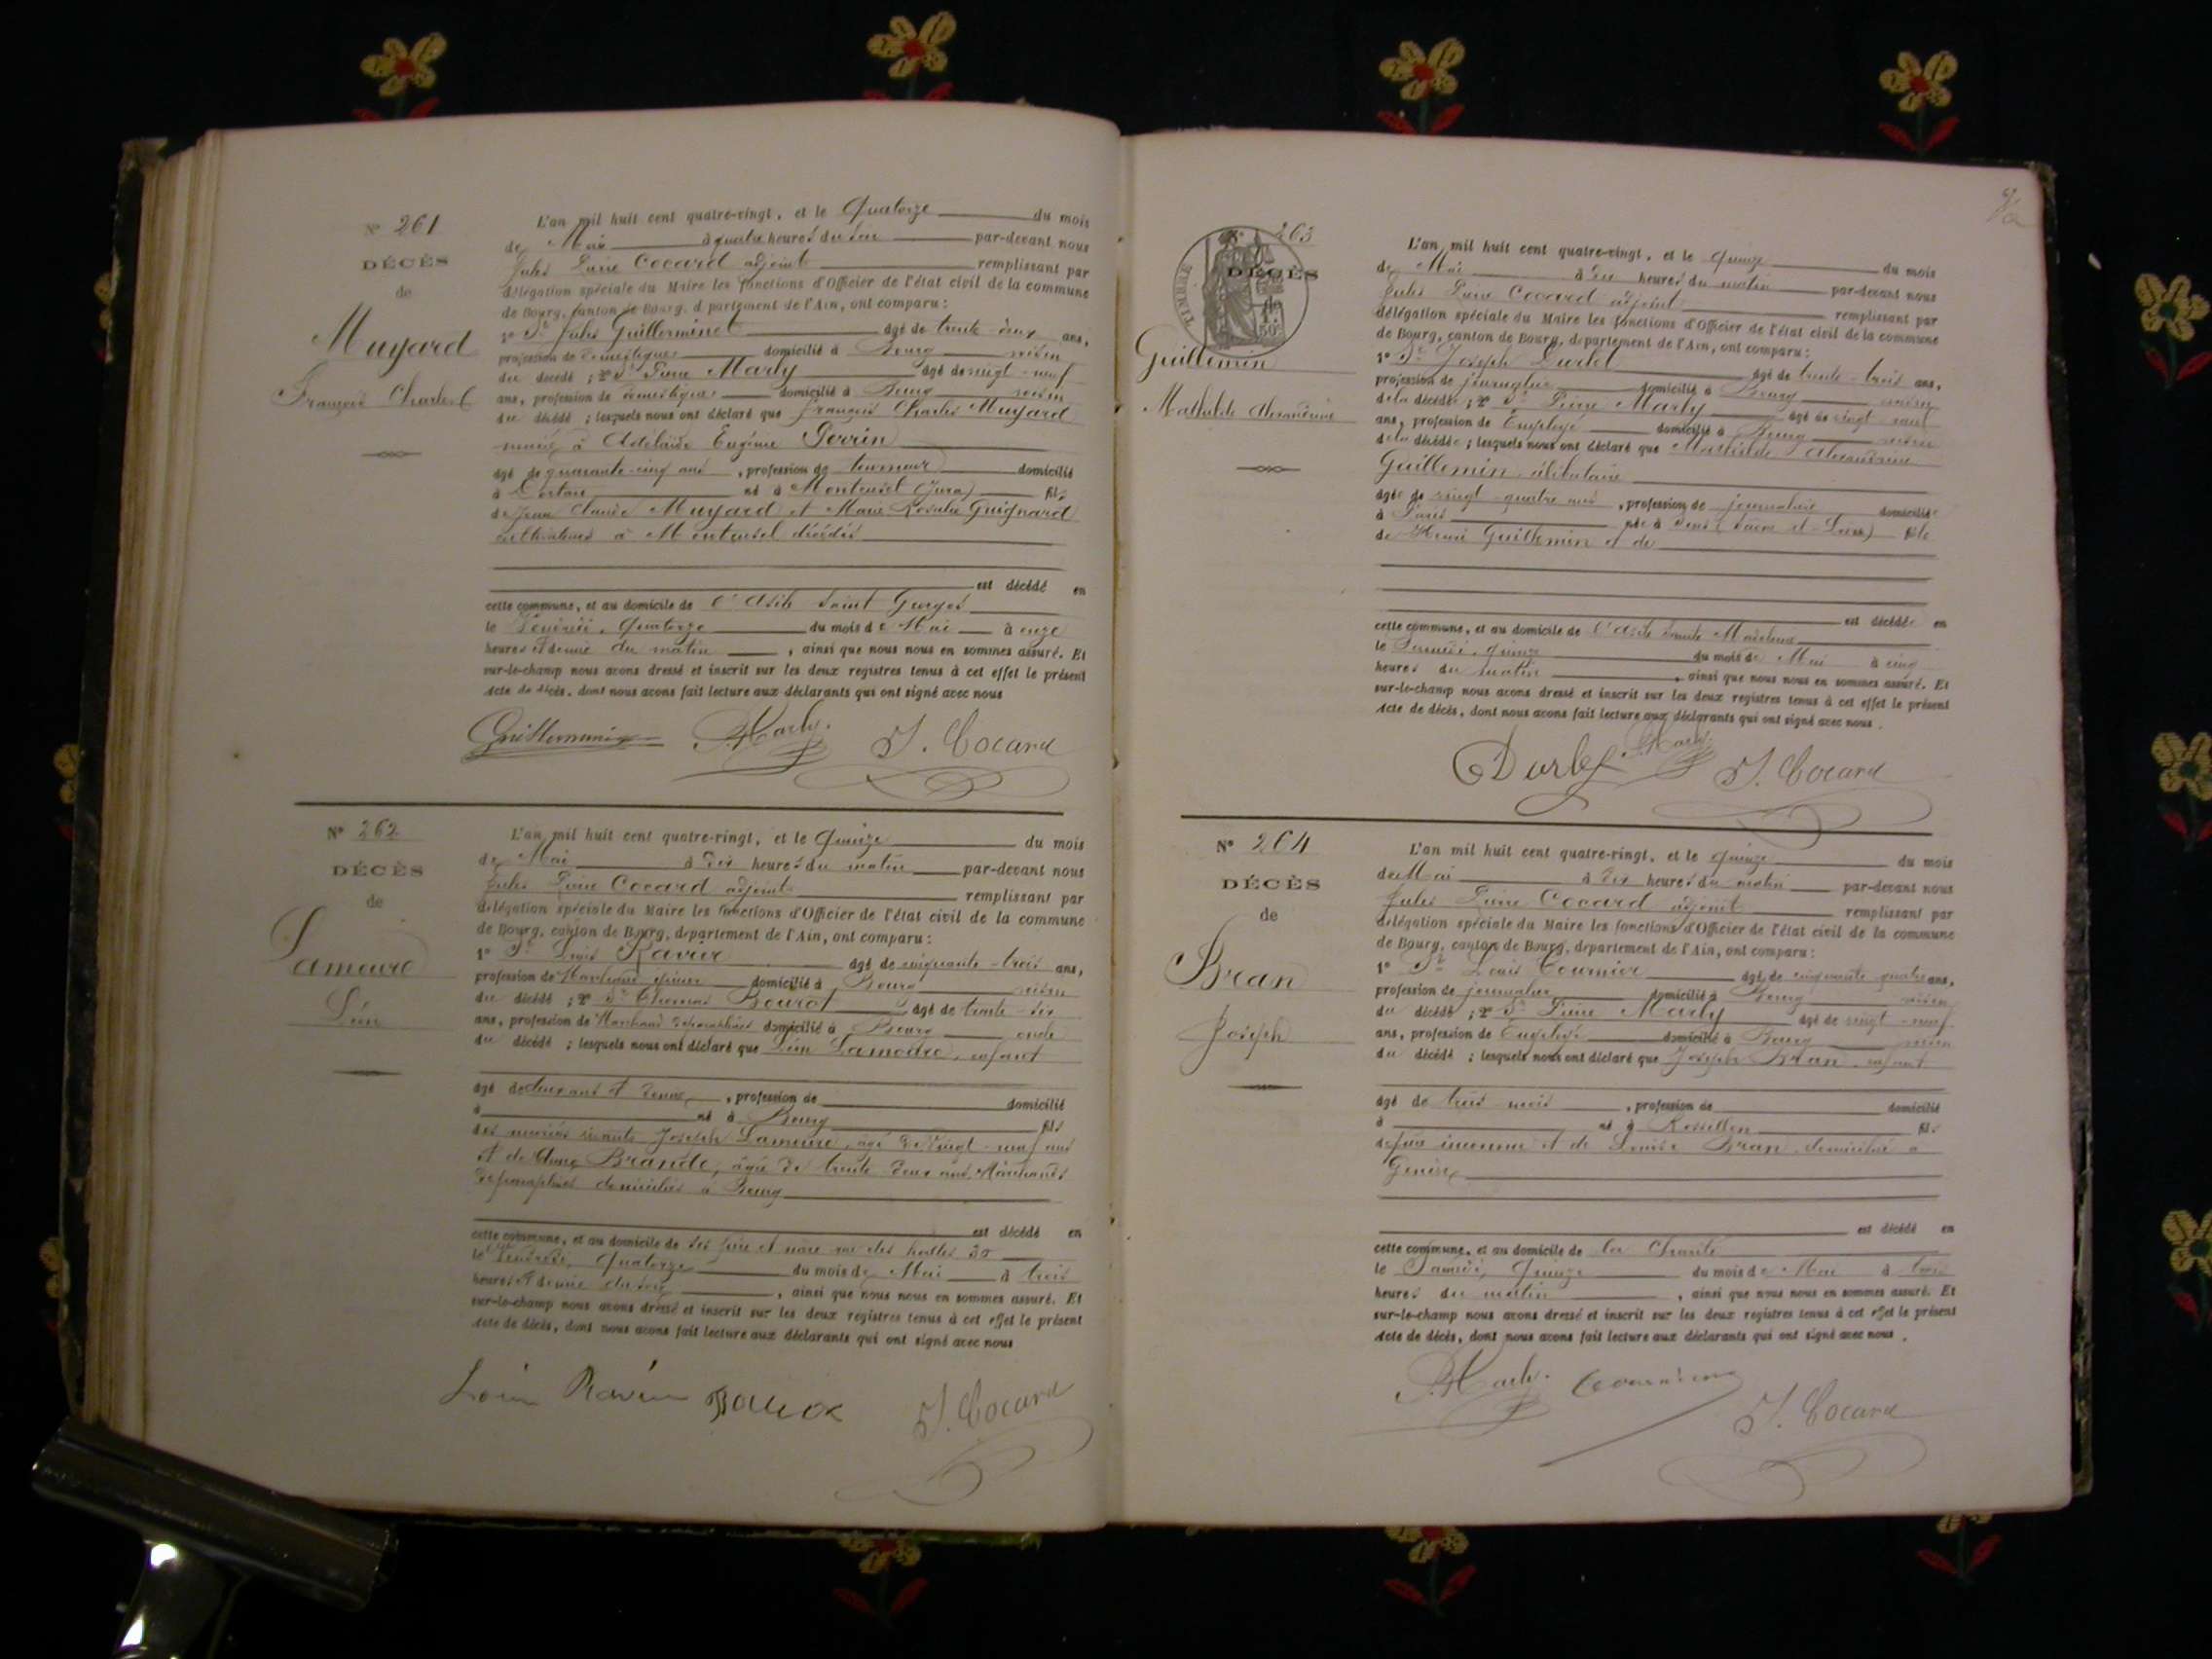 N° 261
DÉCÈS
de
Muyard
François Charles
L'an mil huit cent quatre-vingt, et le Quatorze du mois
de Mai à quatre heures du soir par-devant nous
Jules Pierre Cocard adjoint remplissant par
délégation spéciale du Maire les fonctions d'Officier de l'état civil de la commune
de Bourg, canton de Bourg, département de l'Ain, ont comparu :
1° Sr Jules Guillerminet âgé de trente-deux ans,
profession de domestique domicilié à Bourg voisin
du décédé ; 2° Sr Pierre Marly âgé de vingt-neuf
ans, profession de domestique domicilié à Bourg voisin
du décédé ; lesquels nous ont déclaré que François Charles Muyard
marié à Adélaïde Eugénie Perrin
âgé de quarante-cinq ans, profession de tourneur domicilié
à Dortan né à Montcusel (Jura) fils
de Jean Claude Muyard et Marie Rosalie Guignard
cultivateurs à Montcusel décédés
est décédé en
cette commune, et au domicile de l'Asile Saint Georges
le Vendredi, Quatorze du mois de Mai à onze
heures et demie du matin, ainsi que nous nous en sommes assuré. Et
sur-le-champ nous avons dressé et inscrit sur les deux registres tenus à cet effet le présent
Acte de décès, dont nous avons fait lecture aux déclarants qui ont signé avec nous
Guillerminet P. Marly. J. Cocard
N° 262
DÉCÈS
de
Lamoure
Léon
L'an mil huit cent quatre-vingt, et le Quinze du mois
de Mai à dix heures du matin par-devant nous
Jules Pierre Cocard adjoint remplissant par
délégation spéciale du Maire les fonctions d'Officier de l'état civil de la commune
de Bourg, canton de Bourg, département de l'Ain, ont comparu :
1° Sr Louis Ravier âgé de cinquante-trois ans,
profession de Marchand domicilié à Bourg voisin
du décédé ; 2° Sr Thomas âgé de trente-six
ans, profession de Marchand de parapluies domicilié à Bourg oncle
du décédé ; lesquels nous ont déclaré que Léon Lamoure, enfant
âgé de deux ans et demi, profession de domicilié
à né à Bourg fils
des mariés vivants Joseph Lamoure, âgé de vingt-neuf ans
et de Anne Brande, âgée de trente deux ans, Marchands
de parapluies domiciliés à Bourg
est décédé en
cette commune, et au domicile de ses père et mère rue des halles 30
le Vendredi, Quatorze du mois de Mai à trois
heures et demie du soir, ainsi que nous nous en sommes assuré. Et
sur-le-champ nous avons dressé et inscrit sur les deux registres tenus à cet effet le présent
Acte de décès, dont nous avons fait lecture aux déclarants qui ont signé avec nous
J. Cocard
N° 263
DÉCÈS
TIMBRE
50c
Guillemin
Mathilde Alexandrine
L'an mil huit cent quatre-vingt, et le quinze du mois
de Mai à dix heures du matin par-devant nous
Jules Pierre Cocard adjoint remplissant par
délégation spéciale du Maire les fonctions d'Officier de l'état civil de la commune
de Bourg, canton de Bourg, département de l'Ain, ont comparu :
1° Sr Joseph âgé de trente-trois ans,
profession de journalier domicilié à Bourg voisin
de la décédée ; 2° Sr Pierre Marly âgé de vingt-neuf
ans, profession de Employé domicilié à Bourg voisin
de la décédée ; lesquels nous ont déclaré que Mathilde Alexandrine
Guillemin célibataire
âgée de vingt-quatre ans, profession de journalière domiciliée
à Paris née à (Saône et-Loire) fille
de Henri Guillemin et de
est décédée en
cette commune, et au domicile de l'Asile Sainte Madeleine
le Samedi, quinze du mois de Mai à cinq
heures du matin, ainsi que nous nous en sommes assuré. Et
sur-le-champ nous avons dressé et inscrit sur les deux registres tenus à cet effet le présent
Acte de décès, dont nous avons fait lecture aux déclarants qui ont signé avec nous.
P. Marly J. Cocard
N° 264
DÉCÈS
de
Bran
Joseph
L'an mil huit cent quatre-vingt, et le quinze du mois
de Mai à dix heures du matin par-devant nous
Jules Pierre Cocard adjoint remplissant par
délégation spéciale du Maire les fonctions d'Officier de l'état civil de la commune
de Bourg, canton de Bourg, département de l'Ain, ont comparu :
1° Sr Louis Tournier âgé de cinquante-quatre ans,
profession de journalier domicilié à Bourg voisin
du décédé ; 2° Sr Pierre Marly âgé de vingt-neuf
ans, profession de Employé domicilié à Bourg voisin
du décédé ; lesquels nous ont déclaré que Joseph Bran, enfant
âgé de trois mois, profession de domicilié
à né à Rossillon fils
de père inconnu et de Louise Bran, domiciliée à
Genève
est décédé en
cette commune, et au domicile de la Charité
le Samedi, Quinze du mois de Mai à trois
heures du matin, ainsi que nous nous en sommes assuré. Et
sur-le-champ nous avons dressé et inscrit sur les deux registres tenus à cet effet le présent
Acte de décès, dont nous avons fait lecture aux déclarants qui ont signé avec nous.
P. Marly. Tournier J. Cocard